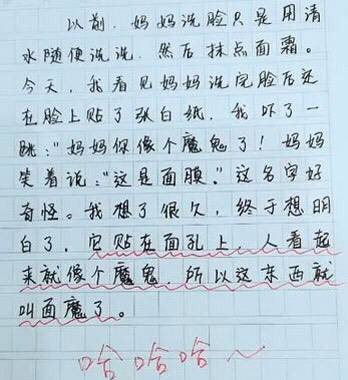 以前，妈妈洗脸只是用清
水随便洗洗，然后抹点面霜。
今天，我看见妈妈洗完脸后还
在脸上贴了张白纸，我吓了一
跳：“妈妈你像个魔鬼了！妈妈
笑着说：“这是面膜。”这名字好
奇怪。我想了很久，终于想明
白了，它贴在面孔上，人看起
来就像个魔鬼，所以这东西就
叫面魔了。
哈哈哈～